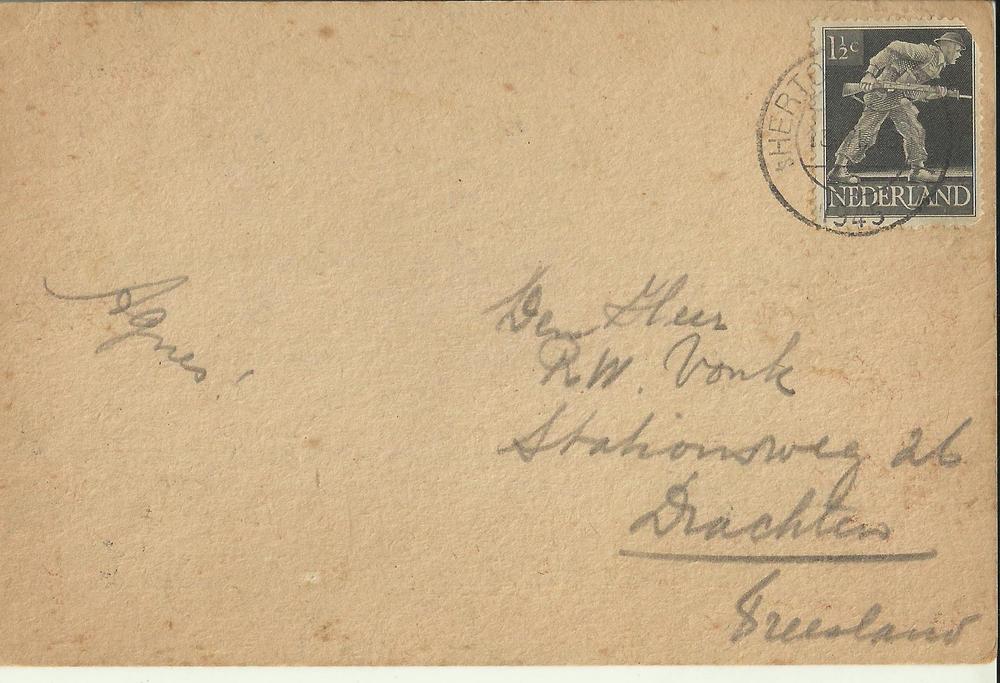 1½c
NEDERLAND
sHERTO
1945
Agnes,
Den Heer
R.W. Vonk
Stationsweg 26
Drachten
Freesland